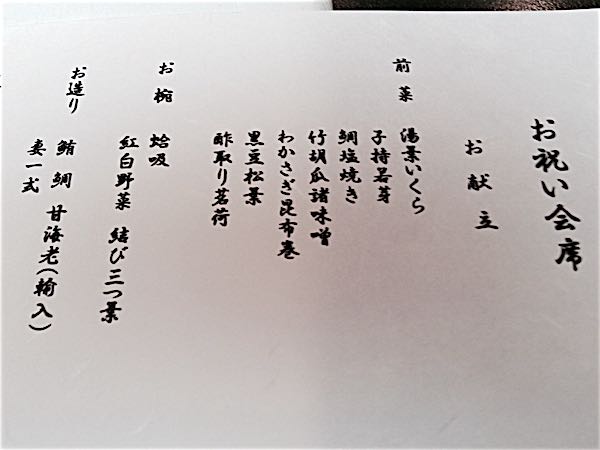 お祝い会席
お献立
前菜
湯葉いくら
子持若芽
鯛塩焼き
竹胡瓜諸味噌
わかさぎ昆布巻
黒豆松葉
酢取り茗荷
お椀
蛤吸
紅白野菜 結び三つ葉
お造り
鮪 鯛 甘海老(輸入)
妻一式